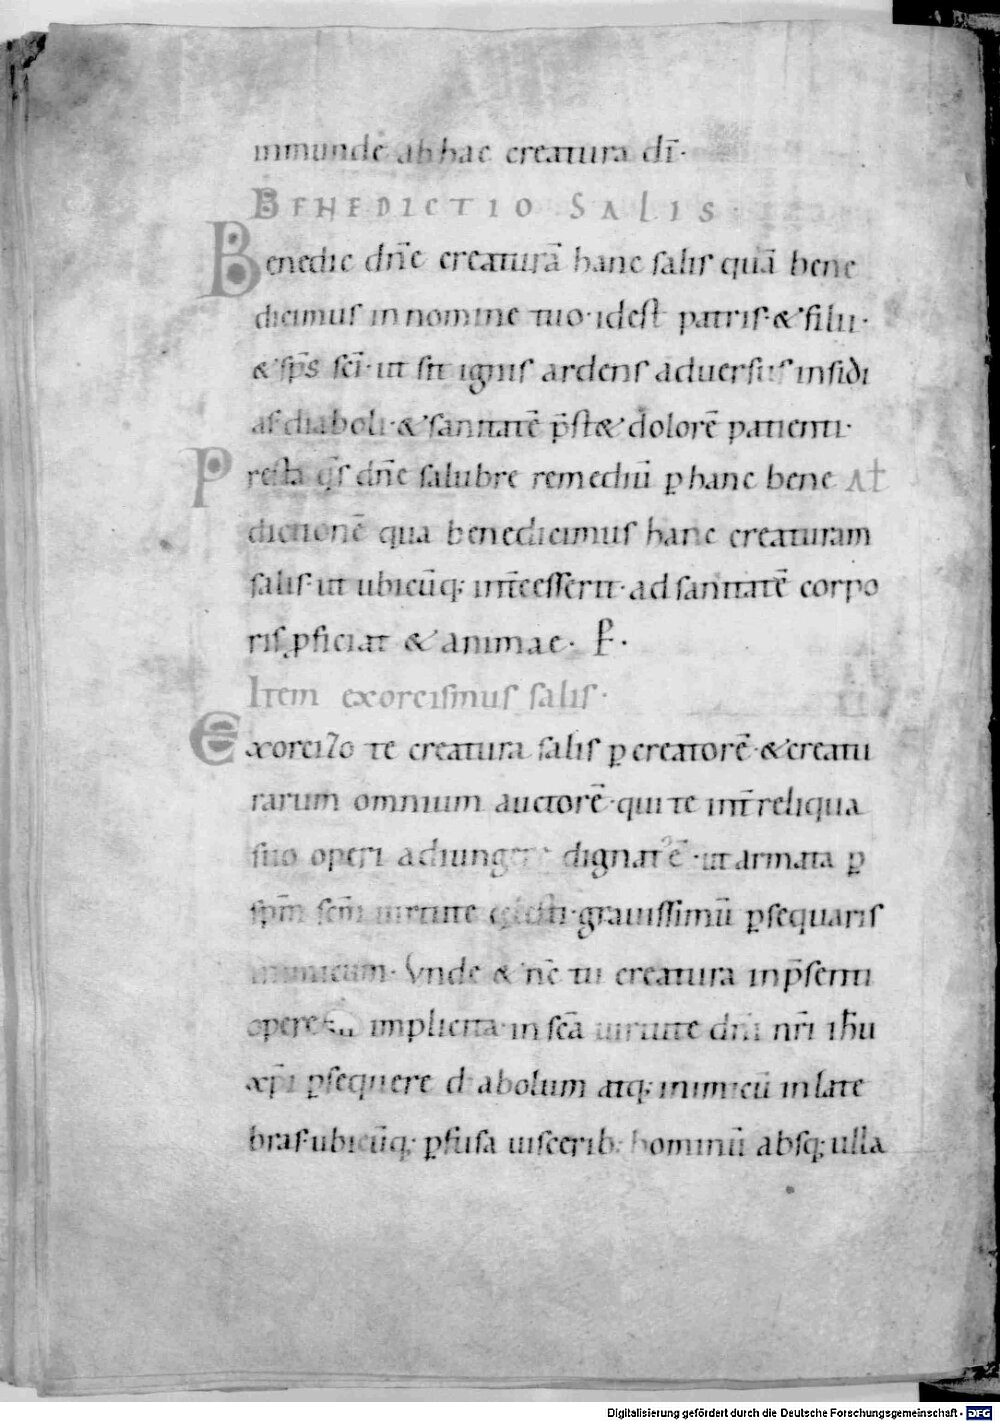 inmunde ab hac creatura dī·
BENEDICTIO SALIS·
Benedic dn̄e creaturā hanc salis quā bene
dicimus in nomine tuo· id est patris· & filii·
& sp̄s sc̄i· ut sit ignis ardens aduersus insidi
as diaboli· & sanitatē p̄st& dolorē patienti·
Presta q̄s dn̄e salubre remediū ꝑ hanc bene At
dictionē qua benedicimus hanc creaturam
salis· ut ubicūq; int̄cesserit· ad sanitatē corpo
ris ꝓficiat & animae· P̱·
Item exorcismus salis·
Exorcizo te creatura salis ꝑ creatorē· & creatu
rarum omnium auctorē· qui te int̄ reliqua
suo operi adiungere dignat᷒ ē· ut armata ꝑ
sp̄m sc̄m uirtute celesti· grauissimū ꝑsequaris
inimicum· Vnde & nc̄ tu creatura in p̄senti
opere implicita· in sc̄a uirtute dn̄i nr̄i ih̄u
xp̄i ꝑsequere diabolum atq; inimicū in late
bras· ubicūq; ꝑfusa uiscerib; hominū absq; ulla
Digitalisierung gefördert durch die Deutsche Forschungsgemeinschaft - DFG